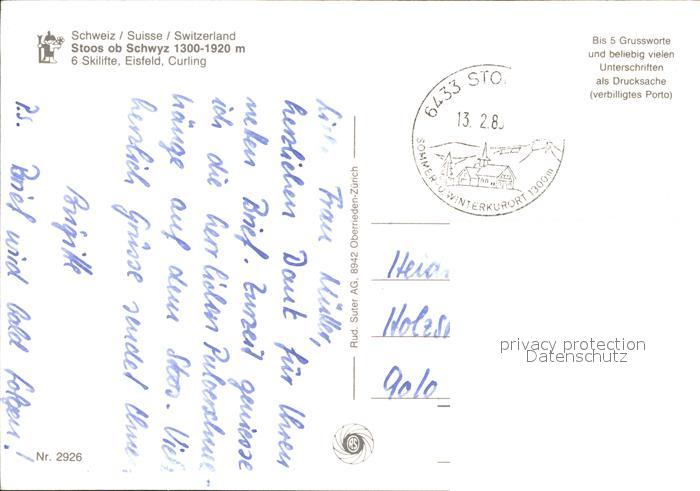 Schweiz / Suisse / Switzerland
Stoos ob Schwyz 1300-1920 m
6 Skilifte, Eisfeld, Curling
Bis 5 Grussworte
und beliebig vielen
Unterschriften
als Drucksache
(verbilligtes Porto)
6433 STO
13. 2.8
SOMMER- U. WINTERKURORT 1300m
Frau Müller,
herzlichen Dank für Ihren
netten Brief. Zurzeit geniesse
ich die herrlichen Pulverschnee-
hänge auf dem Stoos. Viele
herzlich Grüsse sendet Ihnen
Brigitte
P.S. Brief wird bald folgen!
Rud. Suter AG, 8942 Oberrieden-Zürich
Heid
Holzs
9010
privacy protection
Datenschutz
Nr. 2926